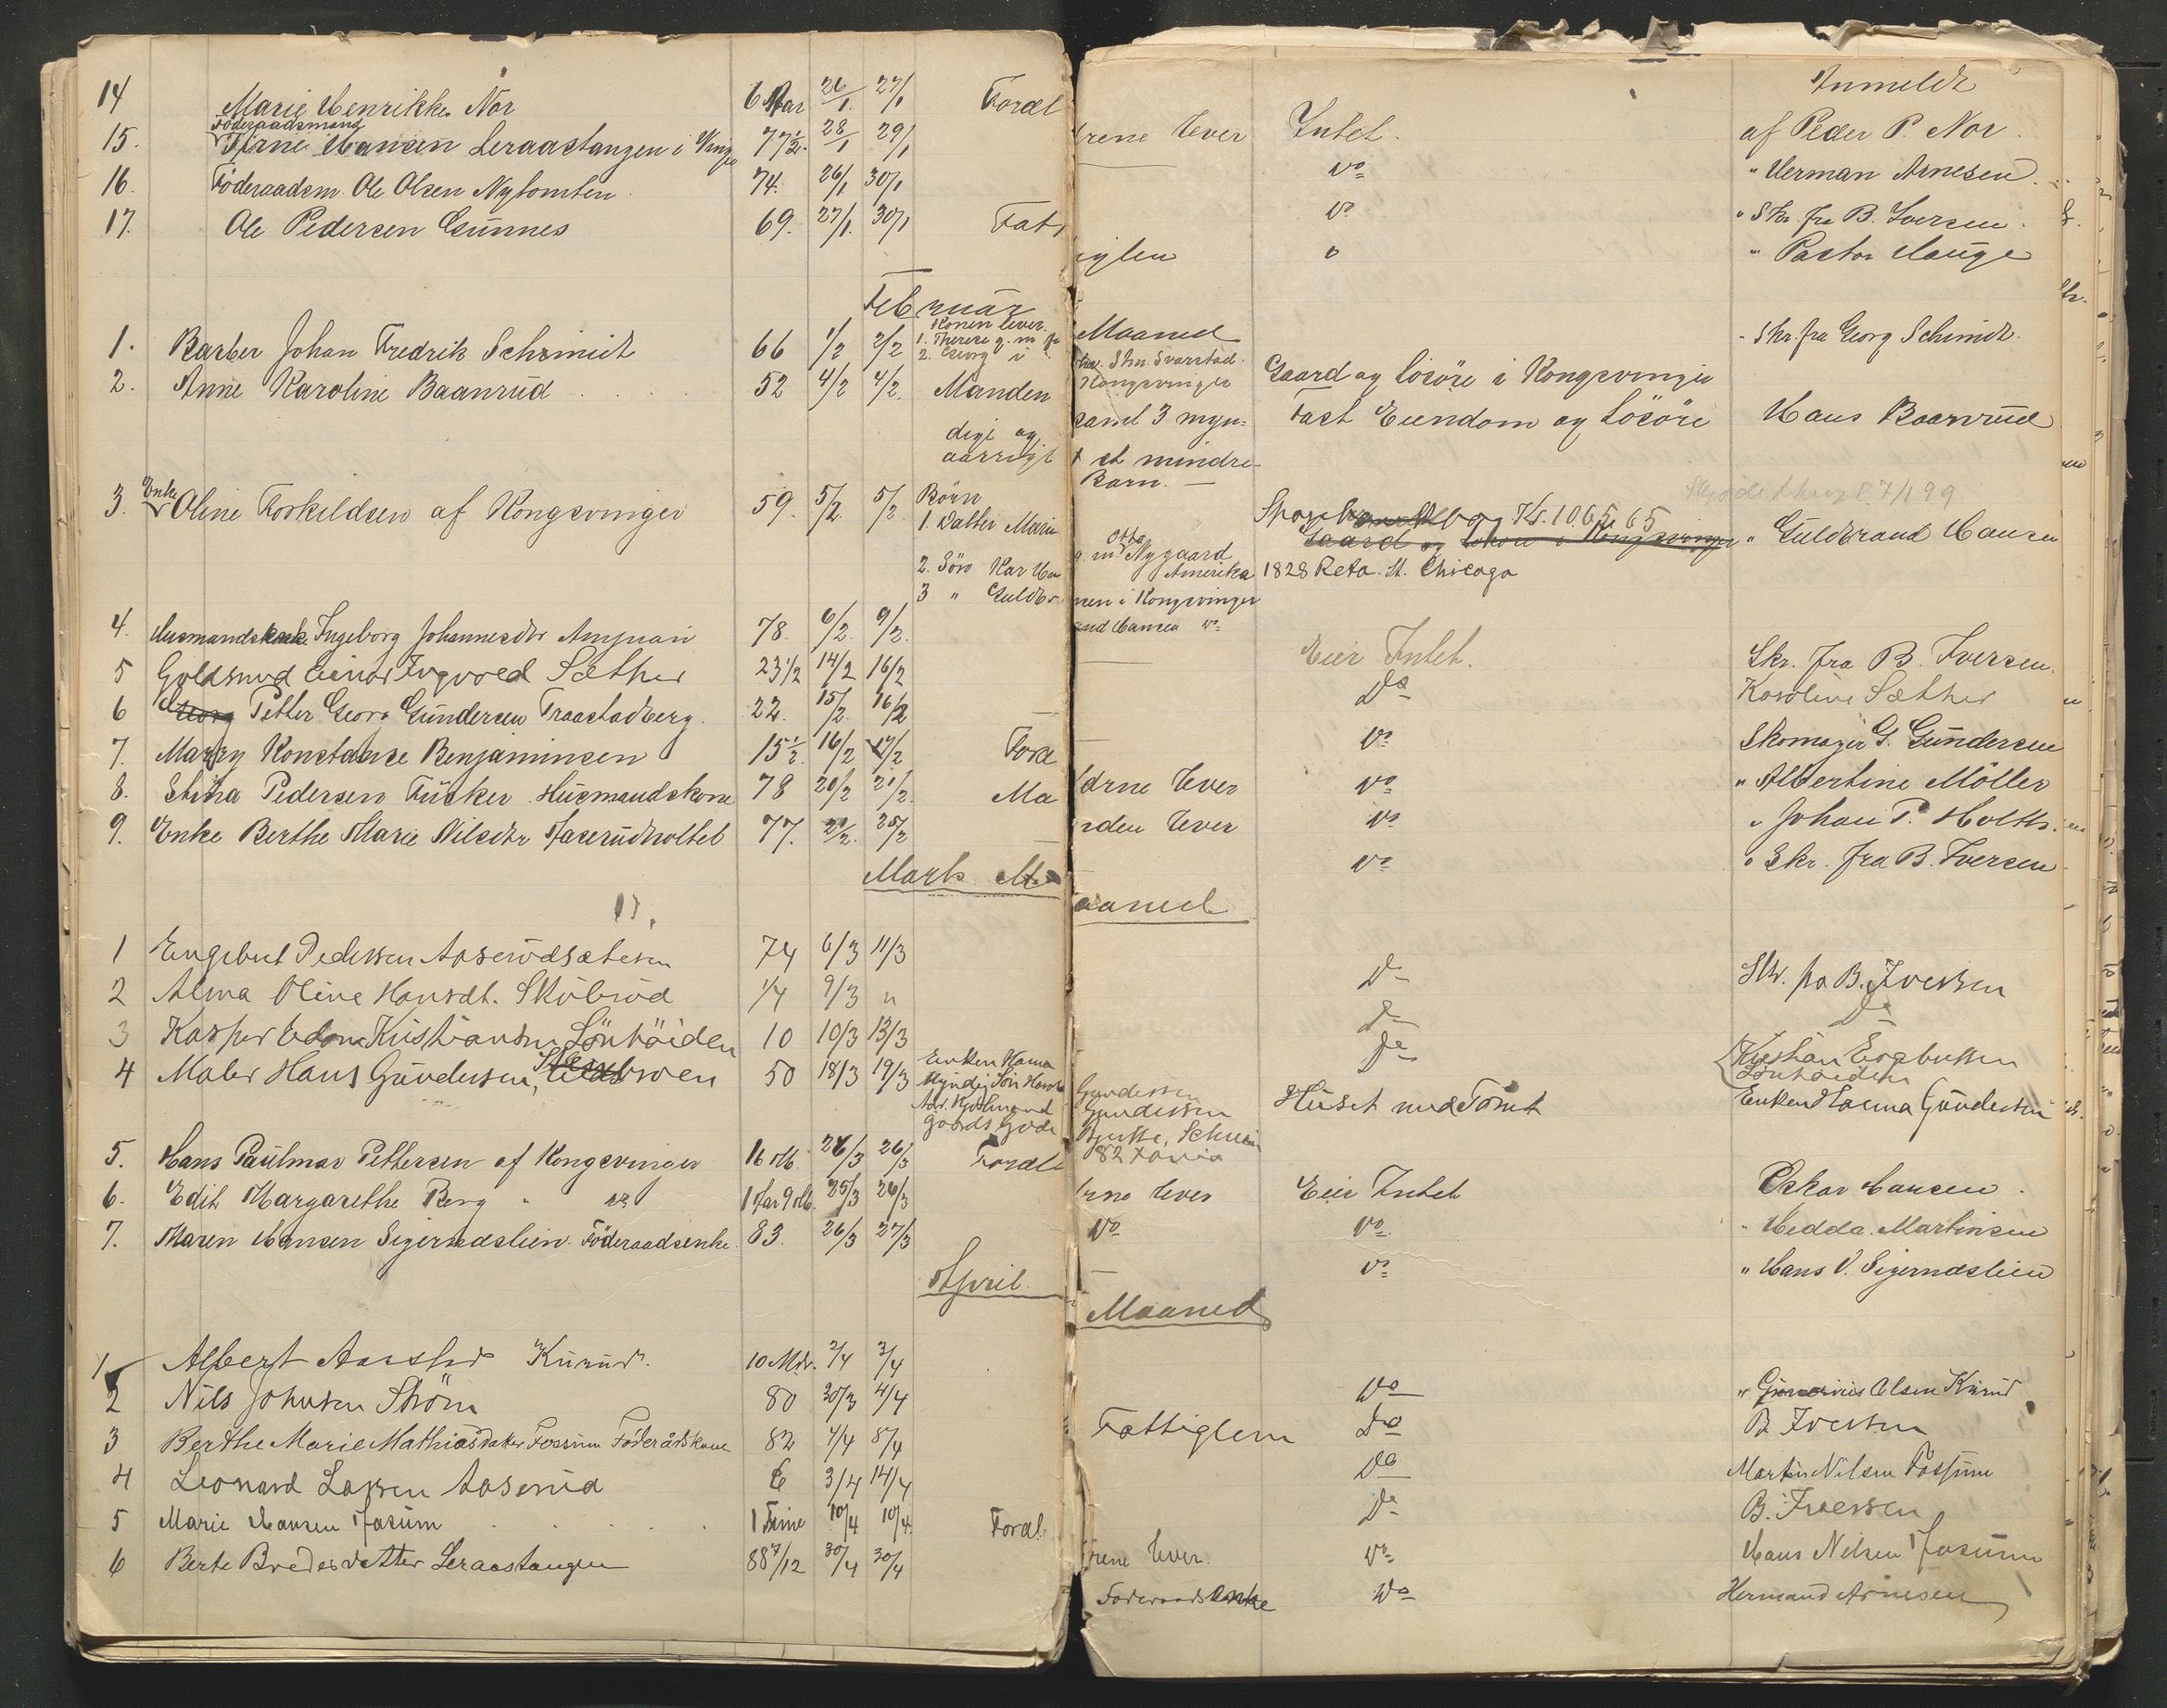 Anmeldt
14 Marie Henrikke Nor 6 Aar 26/1. 27/1 Foræl
drene lever Intet. af Peder P. Nor.
Föderaadsmand
15. Hansen Leraastangen i Vinger 77 1/2. 28/1 29/1
Do " Herman Arnesen.
16. Föderaadsm. Ole Olsen Nytomten. 74. 26/1 30/1
Do " Skr. fra B. Iversen.
17. Ole Pedersen Gunnes 69. 27/1. 30/1 Fatt
iglem " Pastor Hauge
Februar
Maaned
1. Barber Johan Fredrik Schmidt 66 1/2 2/2
Konen lever.
1. Therese g. m.
2. Georg i
Kongsvinger Gaard og lösöre i Kongsvinger
Skr. fra Georg Schmidt.
2. Anne Karoline Baanrud 52 4/2 4/2. Manden
samt 3 myn= Fast Eiendom og Lösöre Hans Baanrud
dige og
aarrigt
et mindre-
Barn. —
3. Enke Oline Torkildsen af Kongsvinger 59. 5/2. 5/2. Börn
1. Valter Marie
g. m. Otto Nygaard
Amerika 1828 St. Chicago
Kr. 1065,65
Gaard og Lösöre i Kongsvinger " Guldbrand Hansen
2. Sörn Kar
3 " Guldbr
sen i Kongsvinger
and Hansen Do
4. Husmandsenke Ingeborg Johannesdtr 78. 6/2. 9/2.
Eier Intet. Skr. fra B. Iversen.
5 Guldsmed Einar Ingvold Sæther 23 1/2 14/2 16/2
Do Karoline Sæther
6 Georg Petter Georg Gundersen Traastadberg. 22. 15/2. 16/2
Do Skomager G. Gundersen
7. Marry Konstanse Benjaminsen 15 1/2. 16/2 17/2 Foræl
drne lever Do " Albertine Möller
8. Stina Pedersen Husmandskone 78 20/2 21/2. Ma
nden lever Do " Johan P. Holth.
9. Enke Berthe Marie Nilsdtr 77. 21/2. 25/2
Do " Skr. fra B. Iversen
Marts Ma
aaned
1 Engebret Pedersen Aaserudsæteren 74 6/3 11/3
Do Skr. fra B. Iversen
2 Alma Oline Hansdt. Skübrud 1/4 9/3 "
Do Do
3 Kasper Edom Kristiansen Lönhöiden 10 10/3 13/3
Do Kristian Engebretsen
Lönhöiden
4 Maler Hans Gundersen, 50 18/3 19/3
Enken Hanna
Gundersen
Myndig Sön
Gundersen Huset med Tomt Enken Hanna Gundersen
5. Hans Paulmar Pettersen af Kongsvinger 16 Mb. 26/3 26/3 Foræld
rne lever Eier Intet Oskar Hansen.
6. Edit Margarethe Berg " Do 1 Aar 9 Mb. 25/3 26/3
Do Do " Hedda Martinsen
7. Maren Hansen Sigernæslien. Föderaadsenke. 83. 26/3 27/3
Do " Hans O. Sigernæslien
April
Maaned
1 Albert Kurud. 10 Mdr. 2/4 3/4
Do " Olsen Kurud
2 Nils Johnsen Ström 80 30/3 4/4
Fattiglem Do B. Iversen
3 Berthe Marie Mathiasdatter Fossum Föderådskone 82 4/4 8/4
Do Martin Nilsen Fossum
4 Leonard Larsen Aaserud 6 3/4 14/4
Do B. Iversen
5 Marie Hansen Fosum 1 Time 10/4 10/4. Foræl
drene lever. Do Hans Nilsen Fosum
6 Berte Bredesdatter Leraastangen 88 7/12 30/4 30/4
Foderaads enke Do Hermand Arnesen